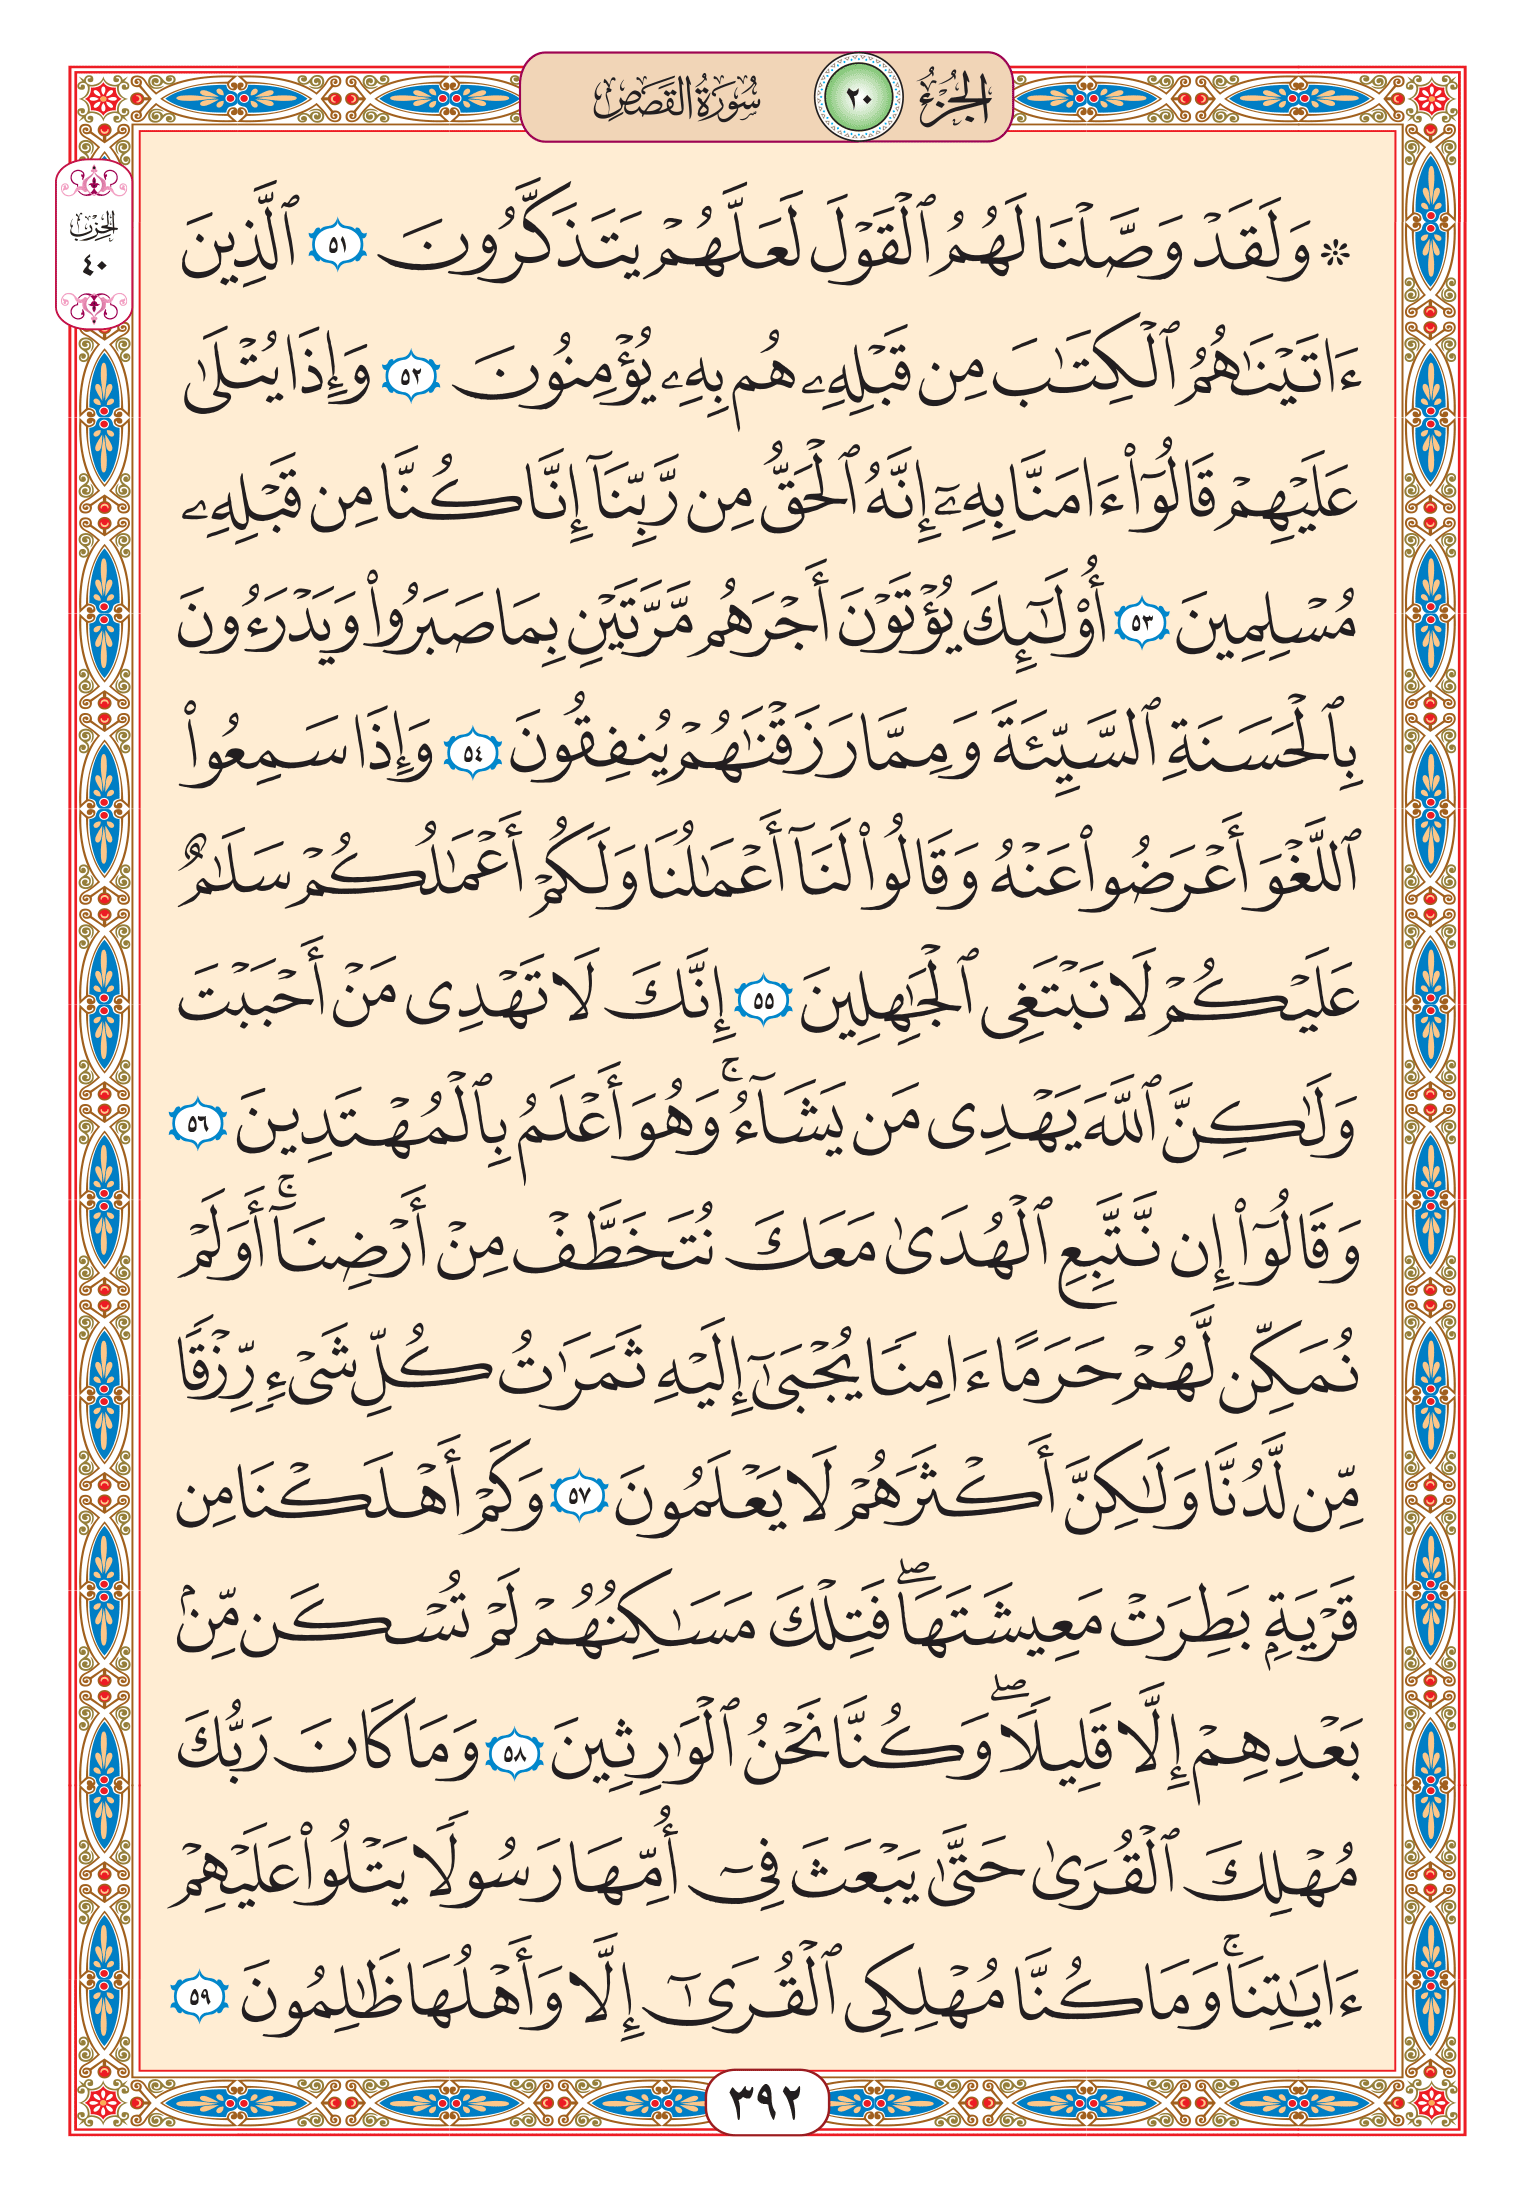 الجزء ٢٠ سورة القصص
الحزب
٤٠
۞ وَلَقَدْ وَصَّلْنَا لَهُمُ ٱلْقَوْلَ لَعَلَّهُمْ يَتَذَكَّرُونَ ٥١ ٱلَّذِينَ
ءَاتَيْنَٰهُمُ ٱلْكِتَٰبَ مِن قَبْلِهِۦ هُم بِهِۦ يُؤْمِنُونَ ٥٢ وَإِذَا يُتْلَىٰ
عَلَيْهِمْ قَالُوٓا۟ ءَامَنَّا بِهِۦٓ إِنَّهُ ٱلْحَقُّ مِن رَّبِّنَآ إِنَّا كُنَّا مِن قَبْلِهِۦ
مُسْلِمِينَ ٥٣ أُو۟لَٰٓئِكَ يُؤْتَوْنَ أَجْرَهُم مَّرَّتَيْنِ بِمَا صَبَرُوا۟ وَيَدْرَءُونَ
بِٱلْحَسَنَةِ ٱلسَّيِّئَةَ وَمِمَّا رَزَقْنَٰهُمْ يُنفِقُونَ ٥٤ وَإِذَا سَمِعُوا۟
ٱللَّغْوَ أَعْرَضُوا۟ عَنْهُ وَقَالُوا۟ لَنَآ أَعْمَٰلُنَا وَلَكُمْ أَعْمَٰلُكُمْ سَلَٰمٌ
عَلَيْكُمْ لَا نَبْتَغِى ٱلْجَٰهِلِينَ ٥٥ إِنَّكَ لَا تَهْدِى مَنْ أَحْبَبْتَ
وَلَٰكِنَّ ٱللَّهَ يَهْدِى مَن يَشَآءُ ۚ وَهُوَ أَعْلَمُ بِٱلْمُهْتَدِينَ ٥٦
وَقَالُوٓا۟ إِن نَّتَّبِعِ ٱلْهُدَىٰ مَعَكَ نُتَخَطَّفْ مِنْ أَرْضِنَآ ۚ أَوَلَمْ
نُمَكِّن لَّهُمْ حَرَمًا ءَامِنًا يُجْبَىٰٓ إِلَيْهِ ثَمَرَٰتُ كُلِّ شَىْءٍ رِّزْقًا
مِّن لَّدُنَّا وَلَٰكِنَّ أَكْثَرَهُمْ لَا يَعْلَمُونَ ٥٧ وَكَمْ أَهْلَكْنَا مِن
قَرْيَةٍۭ بَطِرَتْ مَعِيشَتَهَا ۖ فَتِلْكَ مَسَٰكِنُهُمْ لَمْ تُسْكَن مِّنۢ
بَعْدِهِمْ إِلَّا قَلِيلًا ۖ وَكُنَّا نَحْنُ ٱلْوَٰرِثِينَ ٥٨ وَمَا كَانَ رَبُّكَ
مُهْلِكَ ٱلْقُرَىٰ حَتَّىٰ يَبْعَثَ فِىٓ أُمِّهَا رَسُولًا يَتْلُوا۟ عَلَيْهِمْ
ءَايَٰتِنَا ۚ وَمَا كُنَّا مُهْلِكِى ٱلْقُرَىٰٓ إِلَّا وَأَهْلُهَا ظَٰلِمُونَ ٥٩
٣٩٢